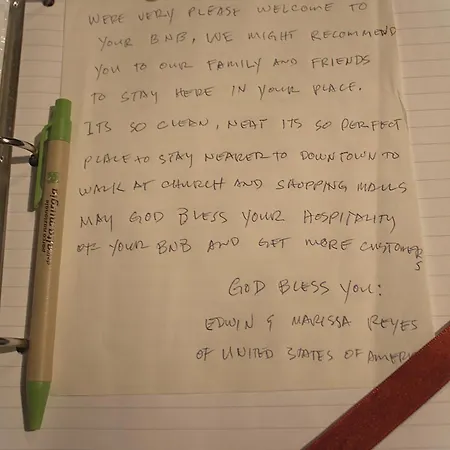 WERE VERY PLEASE WELCOME TO
YOUR BNB, WE MIGHT RECOMMEND
YOU TO OUR FAMILY AND FRIENDS
TO STAY HERE IN YOUR PLACE.
ITS SO CLEEN, NEAT ITS SO PERFECT
PLACE TO STAY NEARER TO DOWNTOWN TO
WALK AT CHURCH AND SHOPPING MALLS
MAY GOD BLESS YOUR HOSPITALITY
OF YOUR BNB AND GET MORE CUSTOMERS
GOD BLESS YOU:
EDWIN & MARISSA REYES
OF UNITED STATES OF AMERI